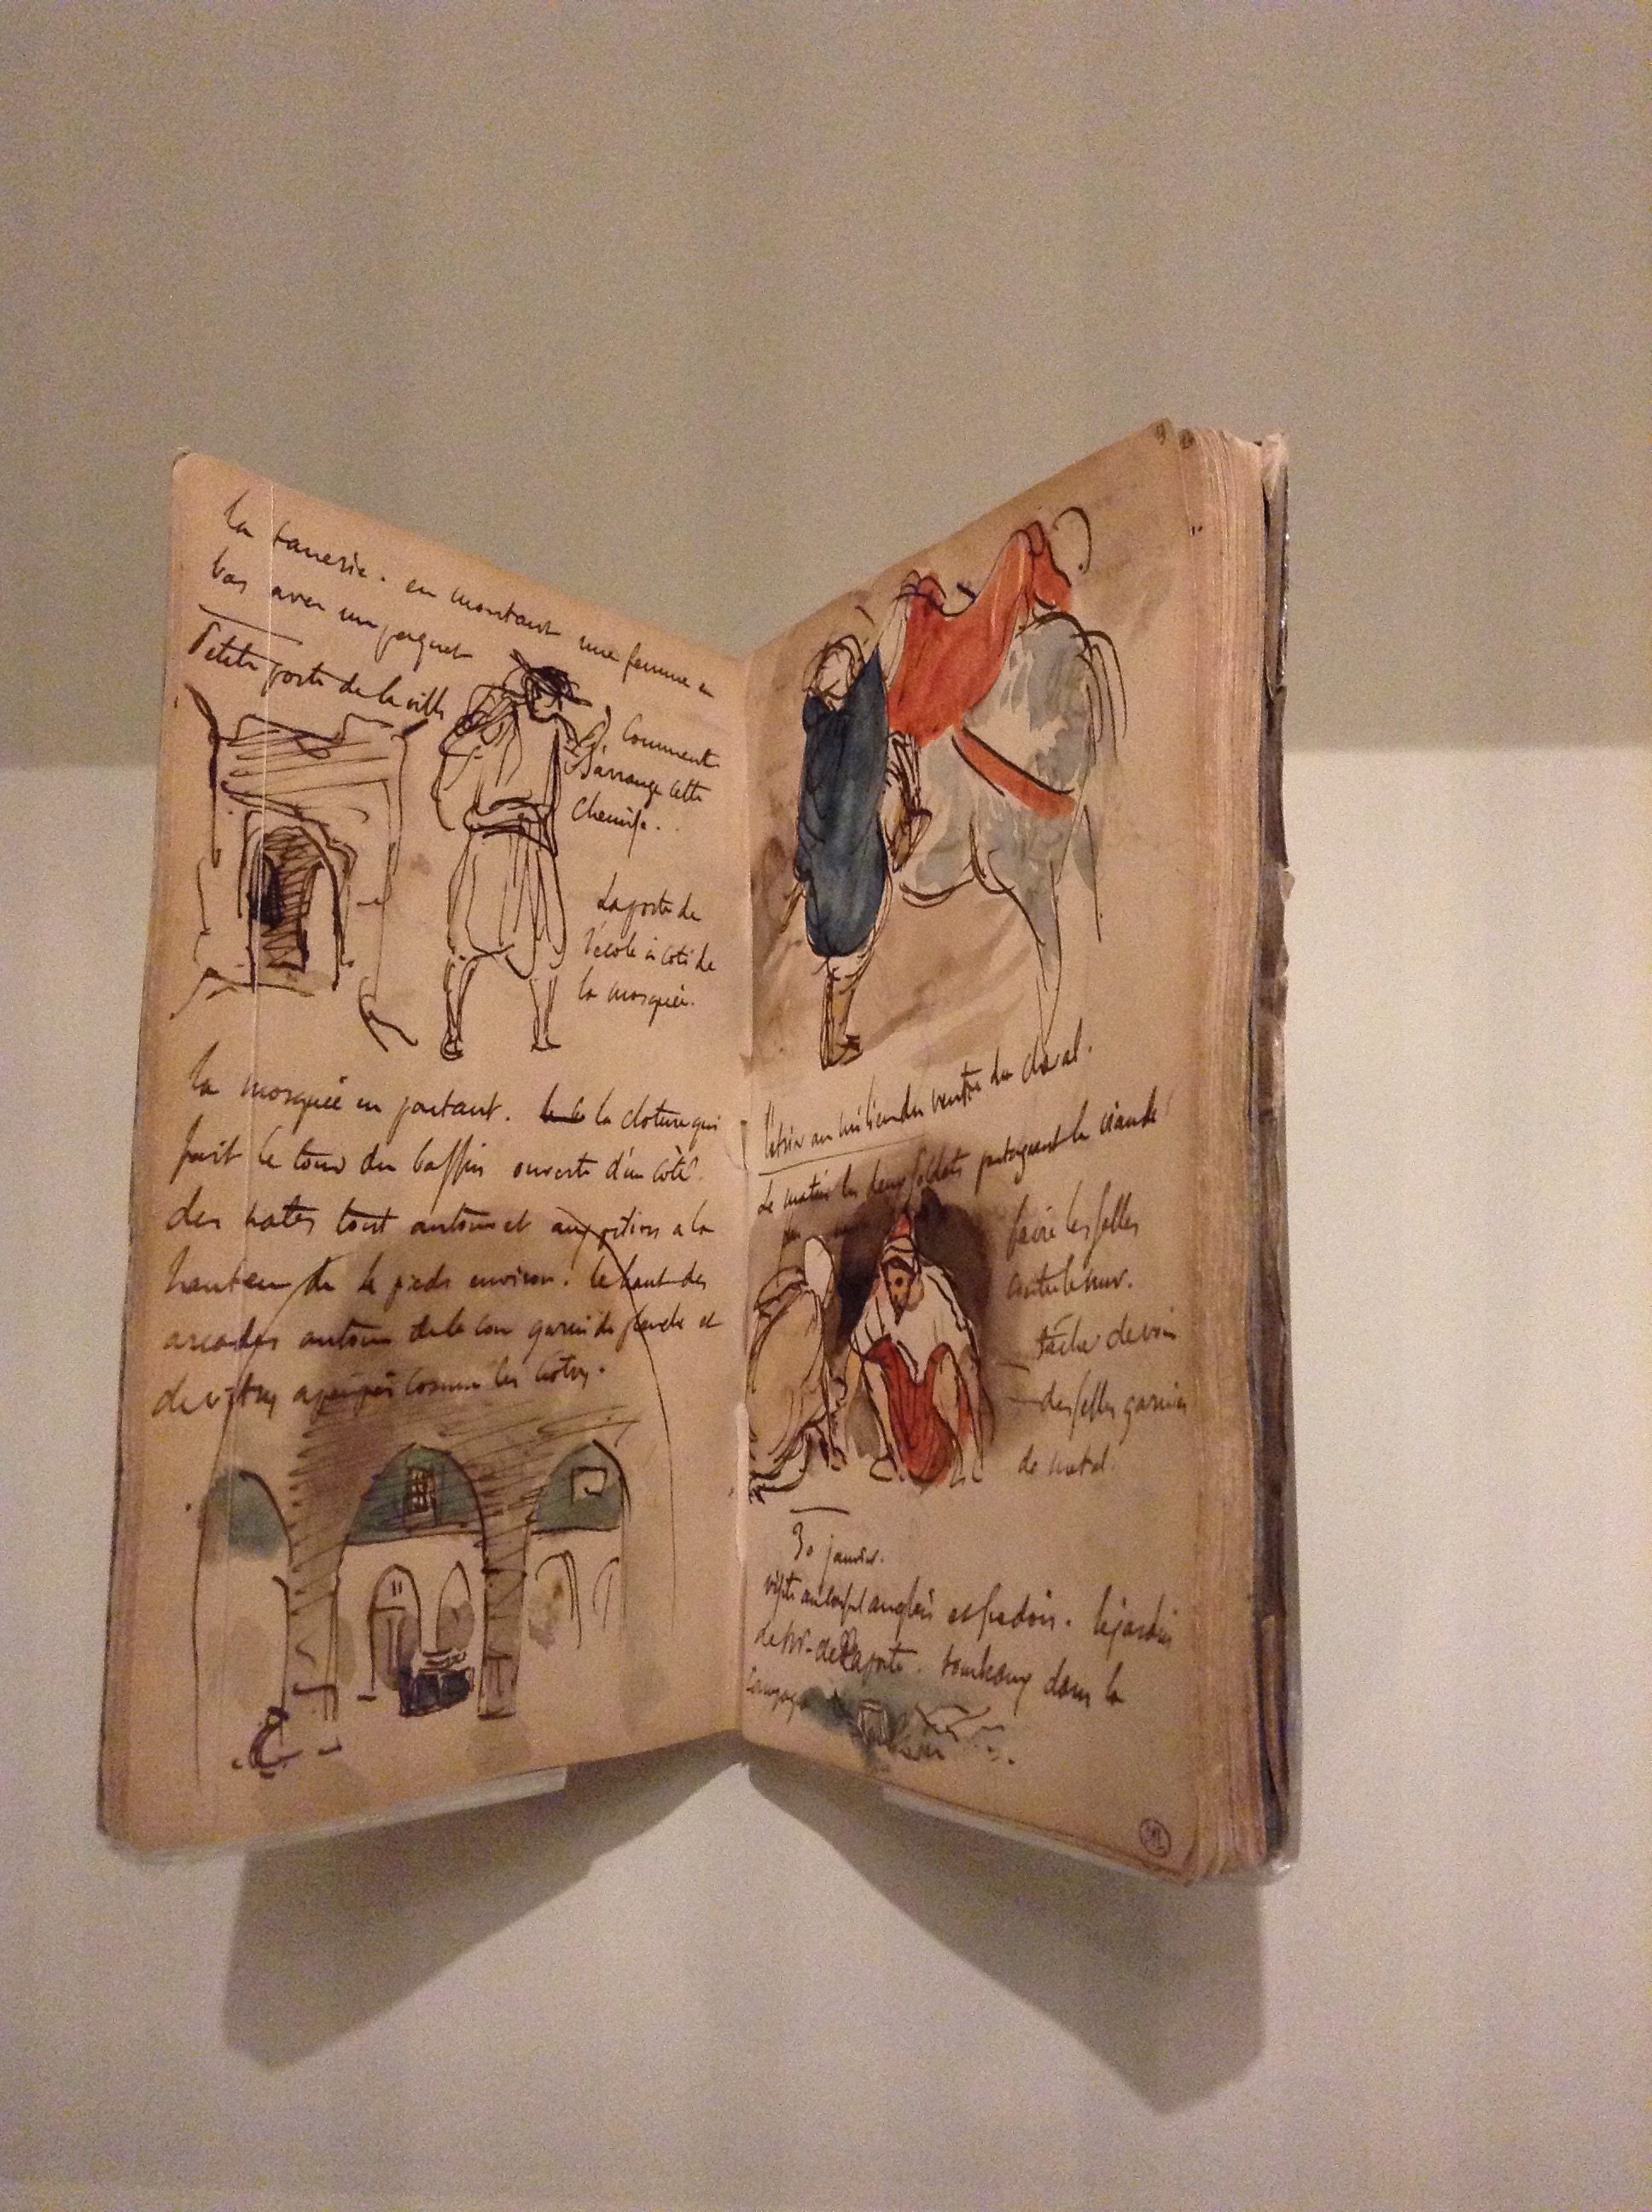 la tanerie. en montant une femme en
bas avec un paquet
Petite porte de la ville
Comment
s'arrange cette
chemise.
La porte de
l'école à coté de
la mosquée.
la mosquée en partant. la cloture qui
fait le tour du bassin ouverte d'un côté.
des nates tout autour et aux pilliers a la
hauteur de pieds environ. le haut des
arcades autour de la cour garni de planche et
de vitres a peu près comme les notres.
l'étrier au milieu du ventre du cheval.
Le matin les deux soldats partageant la viande
faire les selles
contre le mur.
tâche de vin
des selles garnies
de métal.
30 janvier.
visite au consul anglais et suédois. le jardin
de Mr. de Laporte. tombeaux dans la
campagne
ML